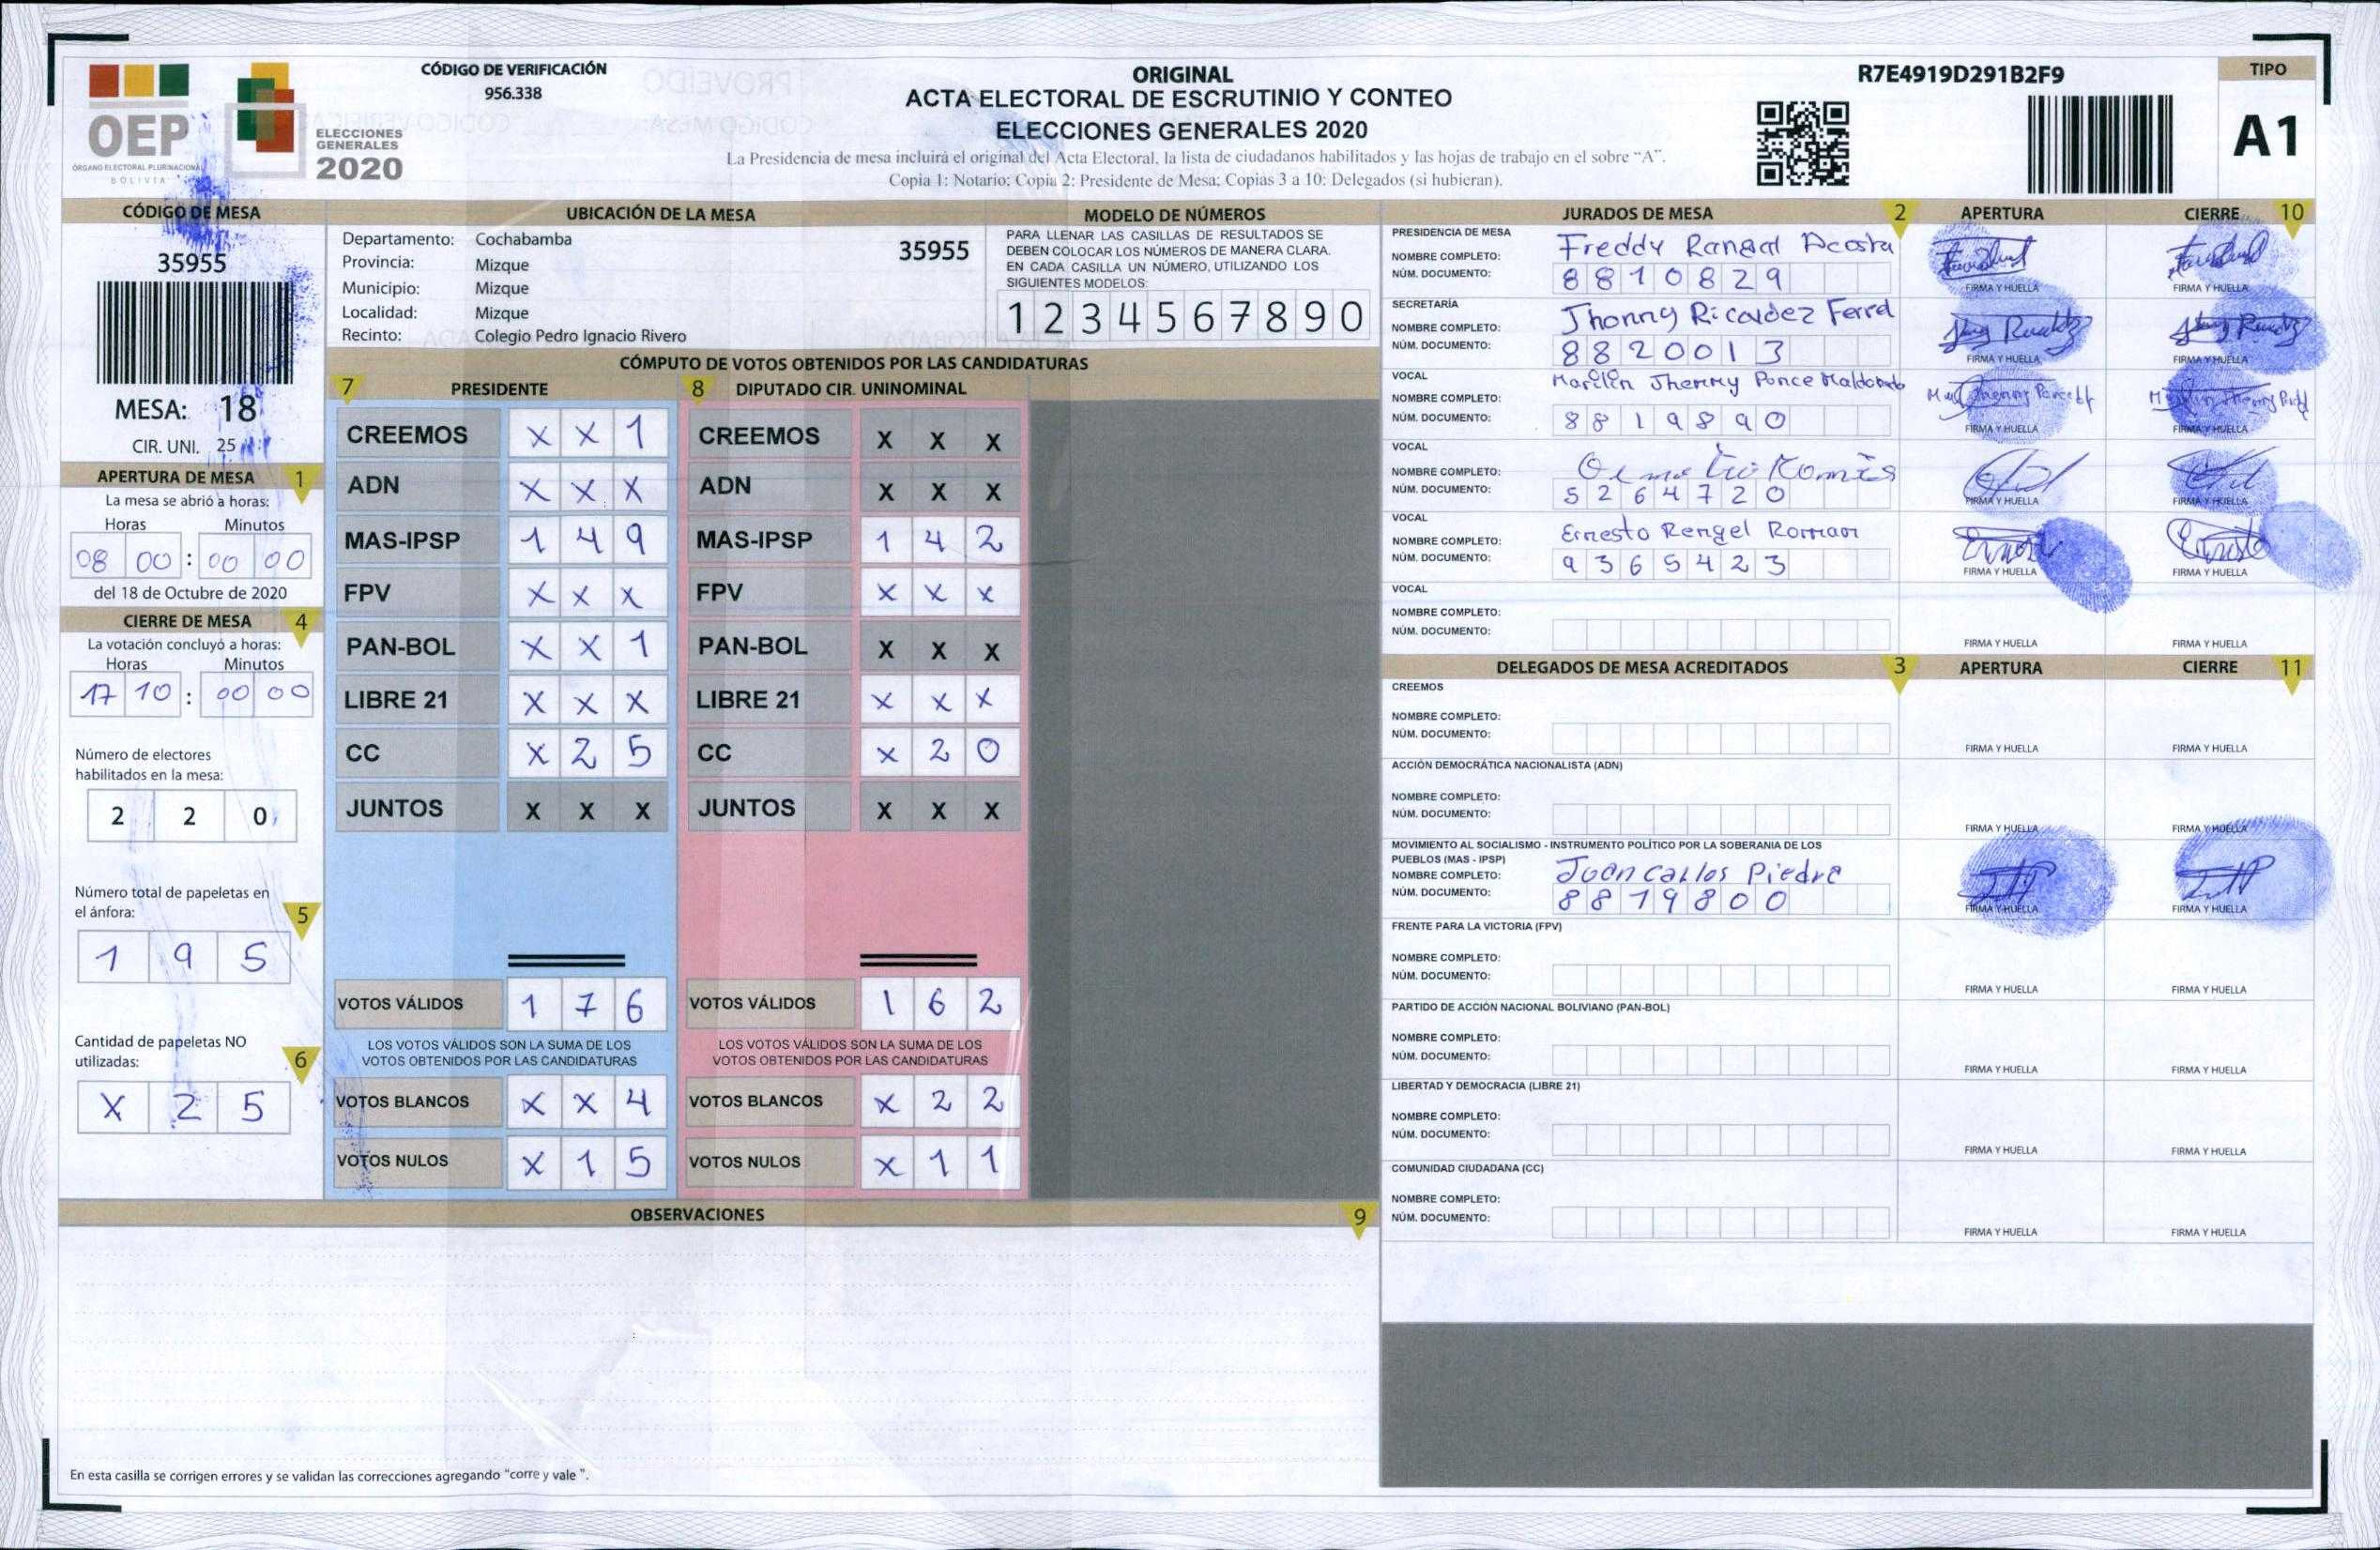 OEP
ÓRGANO ELECTORAL PLURINACIONAL
BOLIVIA
ELECCIONES
GENERALES
2020
CÓDIGO DE VERIFICACIÓN
956.338
ORIGINAL
ACTA ELECTORAL DE ESCRUTINIO Y CONTEO
ELECCIONES GENERALES 2020
La Presidencia de mesa incluirá el original del Acta Electoral, la lista de ciudadanos habilitados y las hojas de trabajo en el sobre “A”.
Copia 1: Notario; Copia 2: Presidente de Mesa; Copias 3 a 10: Delegados (si hubieran).
R7E4919D291B2F9
TIPO
A1
CÓDIGO DE MESA
35955
MESA: 18
CIR. UNI. 25
APERTURA DE MESA 1
La mesa se abrió a horas:
Horas Minutos
08 00 : 00 00
del 18 de Octubre de 2020
CIERRE DE MESA 4
La votación concluyó a horas:
Horas Minutos
17 10 : 00 00
Número de electores
habilitados en la mesa:
2 2 0
Número total de papeletas en
el ánfora: 5
1 9 5
Cantidad de papeletas NO
utilizadas: 6
X 2 5
UBICACIÓN DE LA MESA
Departamento: Cochabamba 35955
Provincia: Mizque
Municipio: Mizque
Localidad: Mizque
Recinto: Colegio Pedro Ignacio Rivero
MODELO DE NÚMEROS
PARA LLENAR LAS CASILLAS DE RESULTADOS SE
DEBEN COLOCAR LOS NÚMEROS DE MANERA CLARA.
EN CADA CASILLA UN NÚMERO, UTILIZANDO LOS
SIGUIENTES MODELOS:
1 2 3 4 5 6 7 8 9 0
CÓMPUTO DE VOTOS OBTENIDOS POR LAS CANDIDATURAS
7 PRESIDENTE 8 DIPUTADO CIR. UNINOMINAL
CREEMOS X X 1 CREEMOS X X X
ADN X X X ADN X X X
MAS-IPSP 1 4 9 MAS-IPSP 1 4 2
FPV X X X FPV X X X
PAN-BOL X X 1 PAN-BOL X X X
LIBRE 21 X X X LIBRE 21 X X X
CC X 2 5 CC X 2 0
JUNTOS X X X JUNTOS X X X
VOTOS VÁLIDOS 1 7 6 VOTOS VÁLIDOS 1 6 2
LOS VOTOS VÁLIDOS SON LA SUMA DE LOS LOS VOTOS VÁLIDOS SON LA SUMA DE LOS
VOTOS OBTENIDOS POR LAS CANDIDATURAS VOTOS OBTENIDOS POR LAS CANDIDATURAS
VOTOS BLANCOS X X 4 VOTOS BLANCOS X 2 2
VOTOS NULOS X 1 5 VOTOS NULOS X 1 1
OBSERVACIONES 9
En esta casilla se corrigen errores y se validan las correcciones agregando “corre y vale ”.
JURADOS DE MESA 2 APERTURA CIERRE 10
PRESIDENCIA DE MESA
NOMBRE COMPLETO: Freddy Rangal Acosta
NÚM. DOCUMENTO: 8 8 1 0 8 2 9
FIRMA Y HUELLA FIRMA Y HUELLA
SECRETARÍA
NOMBRE COMPLETO: Jhonny Ricaldez Ferrel
NÚM. DOCUMENTO: 8 8 2 0 0 1 3
FIRMA Y HUELLA FIRMA Y HUELLA
VOCAL
NOMBRE COMPLETO: Marilin Jhenny Ponce Maldonado
NÚM. DOCUMENTO: 8 8 1 9 8 9 0
FIRMA Y HUELLA FIRMA Y HUELLA
VOCAL
NOMBRE COMPLETO:
NÚM. DOCUMENTO: 5 2 6 4 7 2 0
FIRMA Y HUELLA FIRMA Y HUELLA
VOCAL
NOMBRE COMPLETO: Ernesto Rengel Roman
NÚM. DOCUMENTO: 9 3 6 5 4 2 3
FIRMA Y HUELLA FIRMA Y HUELLA
VOCAL
NOMBRE COMPLETO:
NÚM. DOCUMENTO:
FIRMA Y HUELLA FIRMA Y HUELLA
DELEGADOS DE MESA ACREDITADOS 3 APERTURA CIERRE 11
CREEMOS
NOMBRE COMPLETO:
NÚM. DOCUMENTO:
FIRMA Y HUELLA FIRMA Y HUELLA
ACCIÓN DEMOCRÁTICA NACIONALISTA (ADN)
NOMBRE COMPLETO:
NÚM. DOCUMENTO:
FIRMA Y HUELLA FIRMA Y HUELLA
MOVIMIENTO AL SOCIALISMO - INSTRUMENTO POLÍTICO POR LA SOBERANIA DE LOS
PUEBLOS (MAS - IPSP)
NOMBRE COMPLETO: Juan Carlos Piedra
NÚM. DOCUMENTO: 8 8 1 9 8 0 0
FIRMA Y HUELLA FIRMA Y HUELLA
FRENTE PARA LA VICTORIA (FPV)
NOMBRE COMPLETO:
NÚM. DOCUMENTO:
FIRMA Y HUELLA FIRMA Y HUELLA
PARTIDO DE ACCIÓN NACIONAL BOLIVIANO (PAN-BOL)
NOMBRE COMPLETO:
NÚM. DOCUMENTO:
FIRMA Y HUELLA FIRMA Y HUELLA
LIBERTAD Y DEMOCRACIA (LIBRE 21)
NOMBRE COMPLETO:
NÚM. DOCUMENTO:
FIRMA Y HUELLA FIRMA Y HUELLA
COMUNIDAD CIUDADANA (CC)
NOMBRE COMPLETO:
NÚM. DOCUMENTO:
FIRMA Y HUELLA FIRMA Y HUELLA